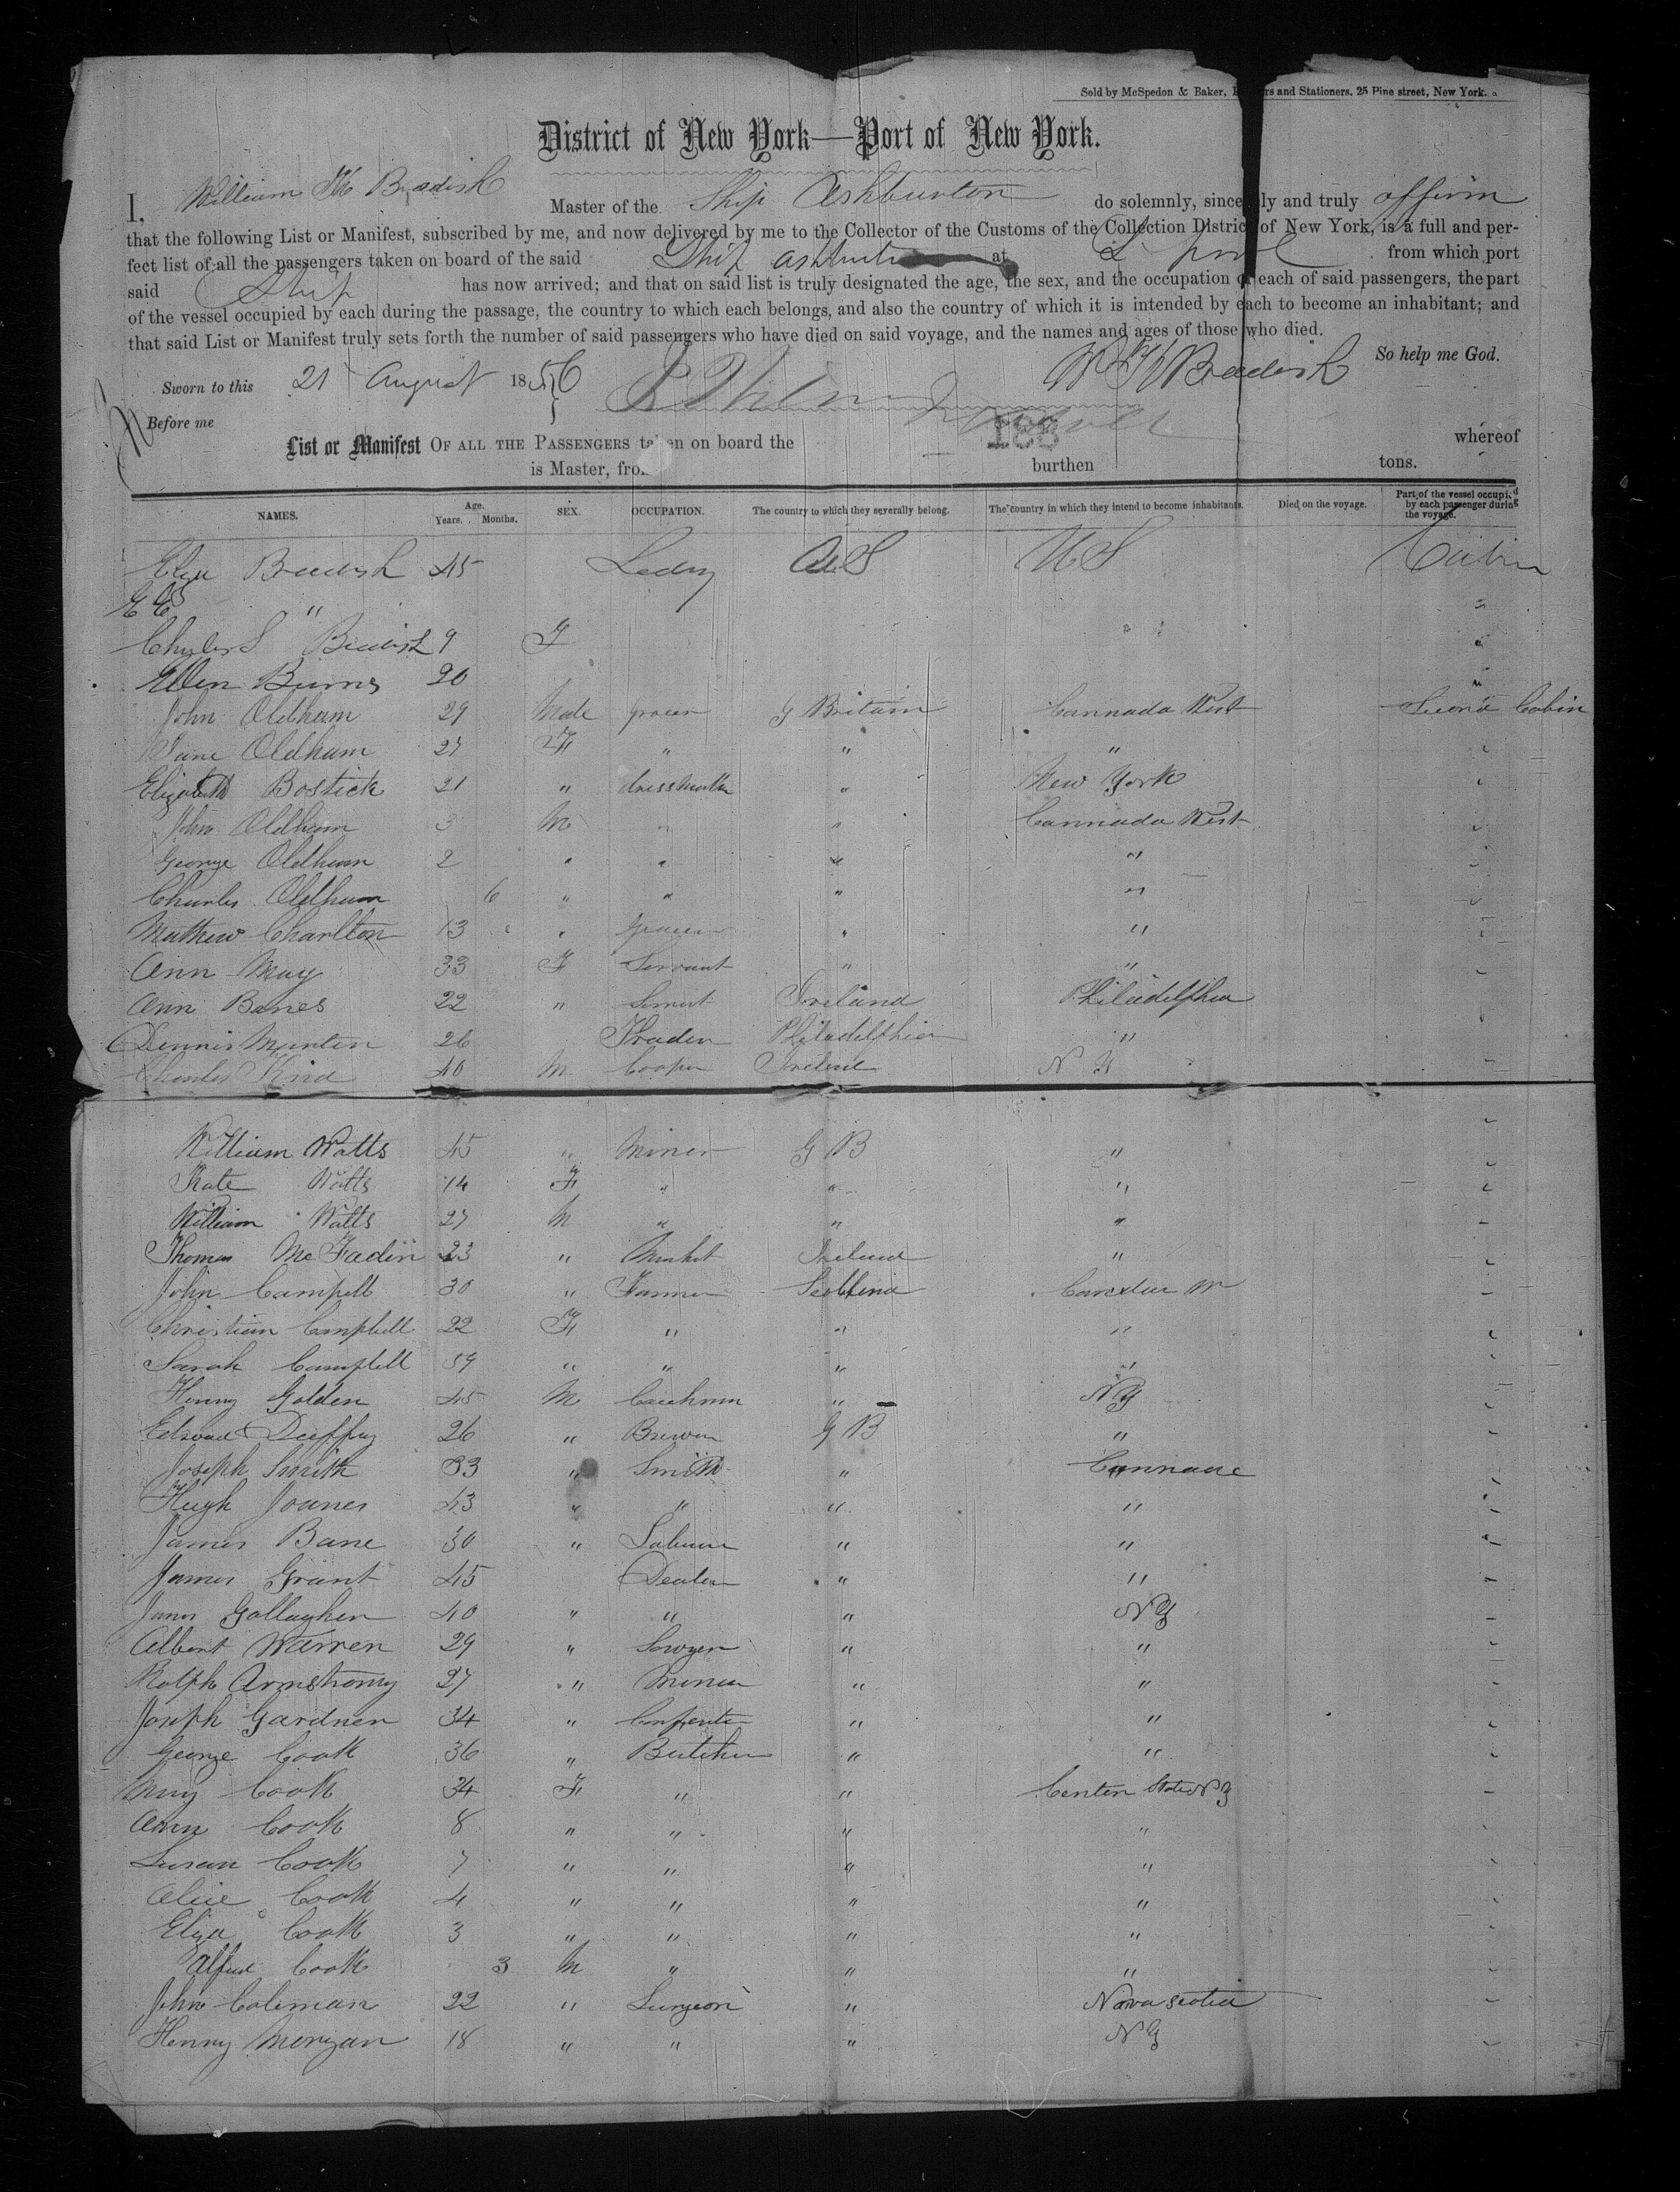 Sold by McSpedon & Baker, rs and Stationers, 25 Pine street, New York.
District of New York—Port of New York.
I, William M Bradish Master of the Ship Ashburton do solemnly, sincerely and truly affirm
that the following List or Manifest, subscribed by me, and now delivered by me to the Collector of the Customs of the Collection District of New York, is a full and per-
fect list of all the passengers taken on board of the said Ship ashburton at L pool from which port
said Ship has now arrived; and that on said list is truly designated the age, the sex, and the occupation of each of said passengers, the part
of the vessel occupied by each during the passage, the country to which each belongs, and also the country of which it is intended by each to become an inhabitant; and
that said List or Manifest truly sets forth the number of said passengers who have died on said voyage, and the names and ages of those who died.
So help me God.
Sworn to this 21 August 1856 Bradish
Before me
188
List or Manifest OF ALL THE PASSENGERS taken on board the whereof
is Master, from burthen tons.
NAMES. Age. Years. Months. SEX. OCCUPATION. The country to which they severally belong. The country in which they intend to become inhabitants. Died on the voyage. Part of the vessel occupied by each passenger during the voyage.
Eliza Bradish 45 Lady US US Cabin
"
Bradish 9 F
Ellen Burns 20 "
John Oldham 29 Male grocer G Britain Cannada West Second Cabin
Jane Oldham 27 F " " "
Elizabeth Bostick 21 " dressmaker " New York
John Oldham 3 M " " Cannada West
George Oldham 2 " " " "
Charles Oldham 6 " " " "
Mathew Charlton 13 " grocer " "
Ann May 33 F Servant " "
Ann Banes 22 " Servant Ireland Philadelphia
Dennis Manten 26 Trader Philadelphia "
Charles Kind 40 M Cooper Ireland N Y
William Watts 45 " Miner G B "
Kate Watts 14 F " " "
William Watts 27 M " " "
Thomas McFadin 23 " Ireland "
John Campell 30 " Farmer Scotland Canada W
Christian Campbell 22 F " " "
Sarah Campbell 59 " " " "
Henry Golden 45 M Coachman " NY
Edward Duffy 26 " Brewer G B "
Joseph Smith 33 " Smith " Cannada
Hugh Joanes 43 " " " "
James Bane 30 " Laburer " "
James Grant 45 Dealer " "
James Gallagher 40 " " " NY
Albert Warren 29 " Sawyer " "
Ralph Armstrong 27 " Miner " "
Joseph Gardner 34 " Carpenter " "
George Cook 36 " Butcher " "
Mary Cook 34 F " " Center State NY
Ann Cook 8 " " " "
Susan Cook 7 " " " "
Alice Cook 4 " " " "
Eliza Cook 3 " " " "
Alfred Cook 3 M " " "
John Coleman 22 " Surgeon " Nova scotia
Henry Morgan 18 " " " NY